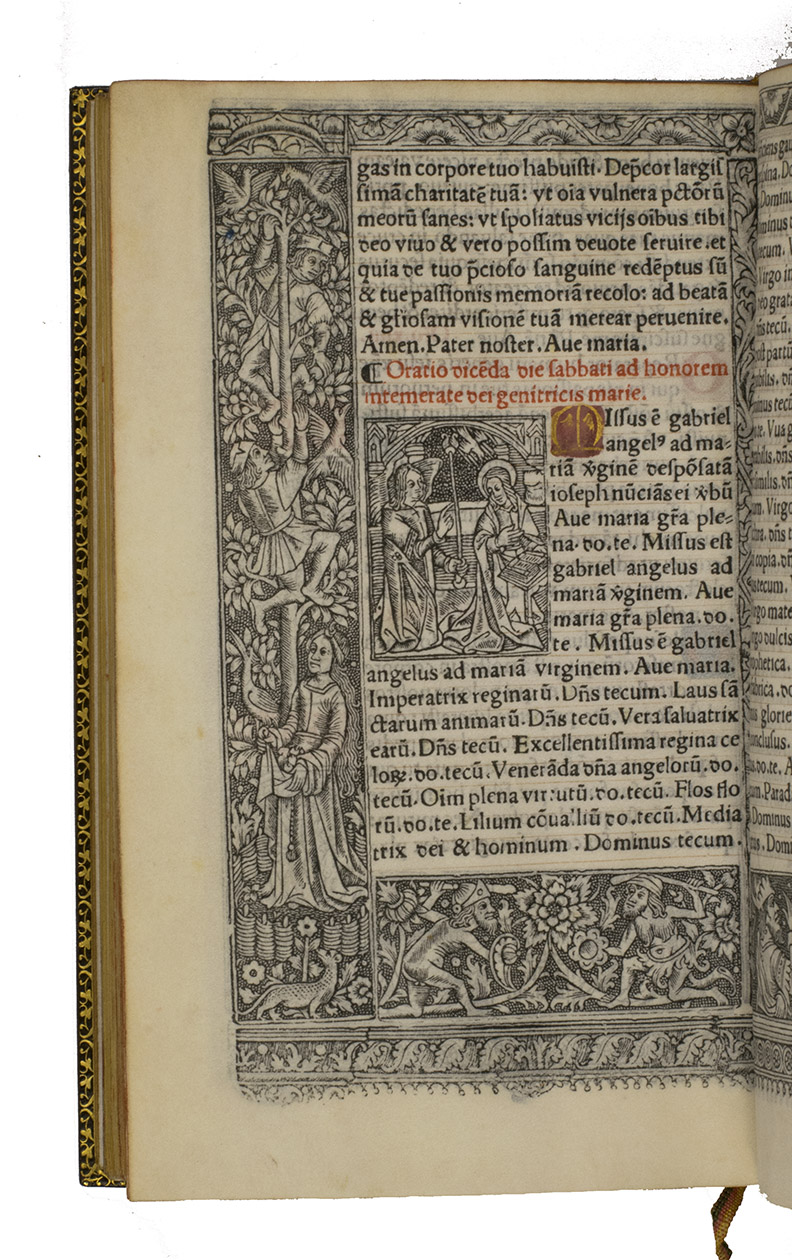 gas in corpore tuo habuisti. Dep̃cor largiſ
ſimã charitatẽ tuã: vt oĩa vulnera pctõrũ
meorũ ſanes: vt ſpoliatus vicijs oĩbus tibi
deo viuo & vero poſſim deuote ſeruire. et
quia de tuo p̃cioſo ſanguine redẽptus ſũ
& tue paſſionis memoriã recolo: ad beatã
& gl̃ioſam viſionẽ tuã merear peruenire.
Amen. Pater noſter. Aue maria.
¶ Oratio dicẽda die ſabbati ad honorem
intemerate dei genitricis marie.
MIſſus ẽ gabriel
angelꝰ ad ma⸗
riã v̾ginẽ deſpõſatã
ioſeph nũciãs ei v̾bũ
Aue maria gr̃a ple⸗
na. do. te. Miſſus eſt
gabriel angelus ad
mariã v̾ginem. Aue
maria gr̃a plena. do.
te. Miſſus ẽ gabriel
angelus ad mariã virginem. Aue maria.
Imperatrix reginarũ. Dñs tecum. Laus ſã
ctarum animarũ. Dñs tecũ. Vera ſaluatrix
earũ. Dñs tecũ. Excellentiſſima regina ce
loꝝ. do. tecũ. Venerãda dña angelorũ. do.
tecũ. Oĩm plena virtutũ. do. tecũ. Flos flo
rũ. do. te. Lilium cõualliũ do. tecũ. Media
trix dei & hominum. Dominus tecum.